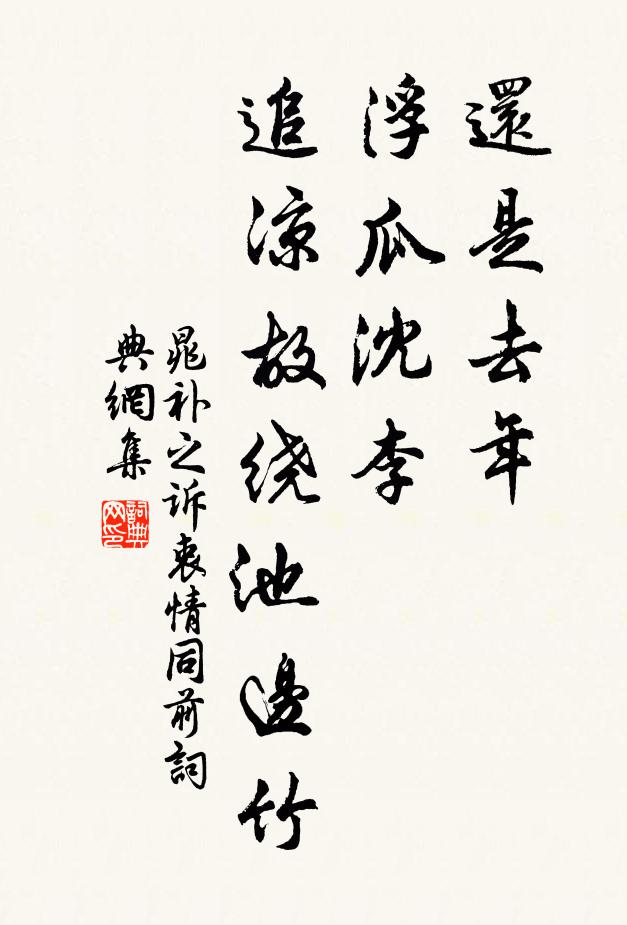 還是去年
浮瓜沈李
追凉故绕池邊竹
晁补之诉衷情同前詞
典網集
詞典网印